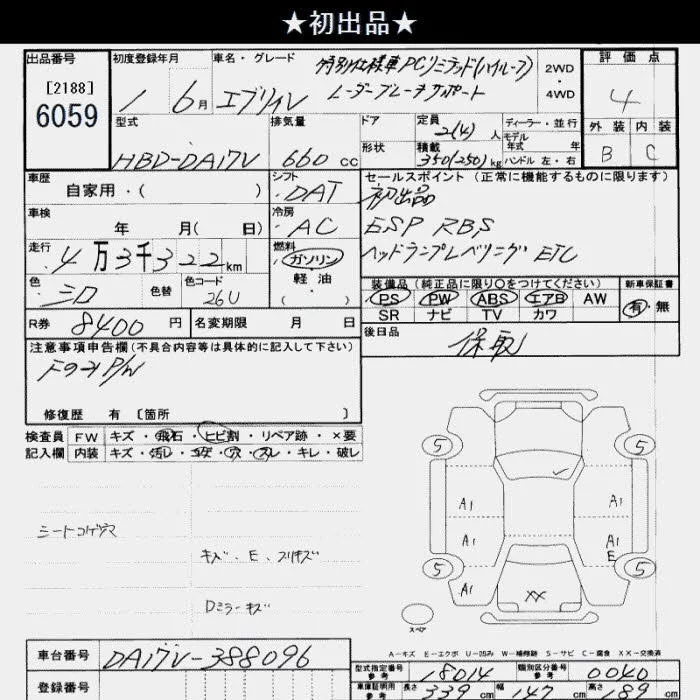 ★初出品★
出品番号
[2188]
6059
初度登録年月
1 6月
車名・グレード
エブリイV
特別仕様車PCリミテッド(ハイルーフ)
レーダーブレーキサポート
2WD・4WD
評価点
4
外装 内装
B C
型式
HBD-DA17V
排気量
660 cc
ドア
形状
定員
2(4) 人
積載
350(250)kg
ディーラー・並行
モデル年式 年
ハンドル 左・右
車歴
自家用・( )
シフト
DAT
セールスポイント (正常に機能するものに限ります)
初出品
ESP RBS
ヘッドランプレベリング ETC
車検
年 月( 日)
冷房
AC
走行
4万3千322km
燃料
ガソリン
軽油
・( )
色
シロ
色替
色コード
26U
装備品 (純正品に限り○をつけてください)
PS PW ABS エアB AW
SR ナビ TV カワ
新車保証書
有・無
R券 8400 円
名変期限 月 日
後日品
保取
注意事項申告欄(不具合内容等は具体的に記入して下さい)
修復歴 有 〔箇所 〕
検査員 FW キズ・飛石・ヒビ割・リペア跡・×要
記入欄 内装 キズ・汚レ・コゲ・穴・スレ・キレ・破レ
シートコゲアマ
キズ・E・スリキズ
Dミラーキズ
5 5
A1 A1
A1 A1
E
5 5
A1
XX
スペア
A-キズ E-エクボ U-凹み W-補修跡 S-サビ C-腐食 XX-交換済
車台番号 DA17V-388096
登録番号
型式指定番号 参考 18014
類別区分番号 参考 0040
車庫証明用 参考 長さ 339 cm 幅 147 cm 高さ 189 cm